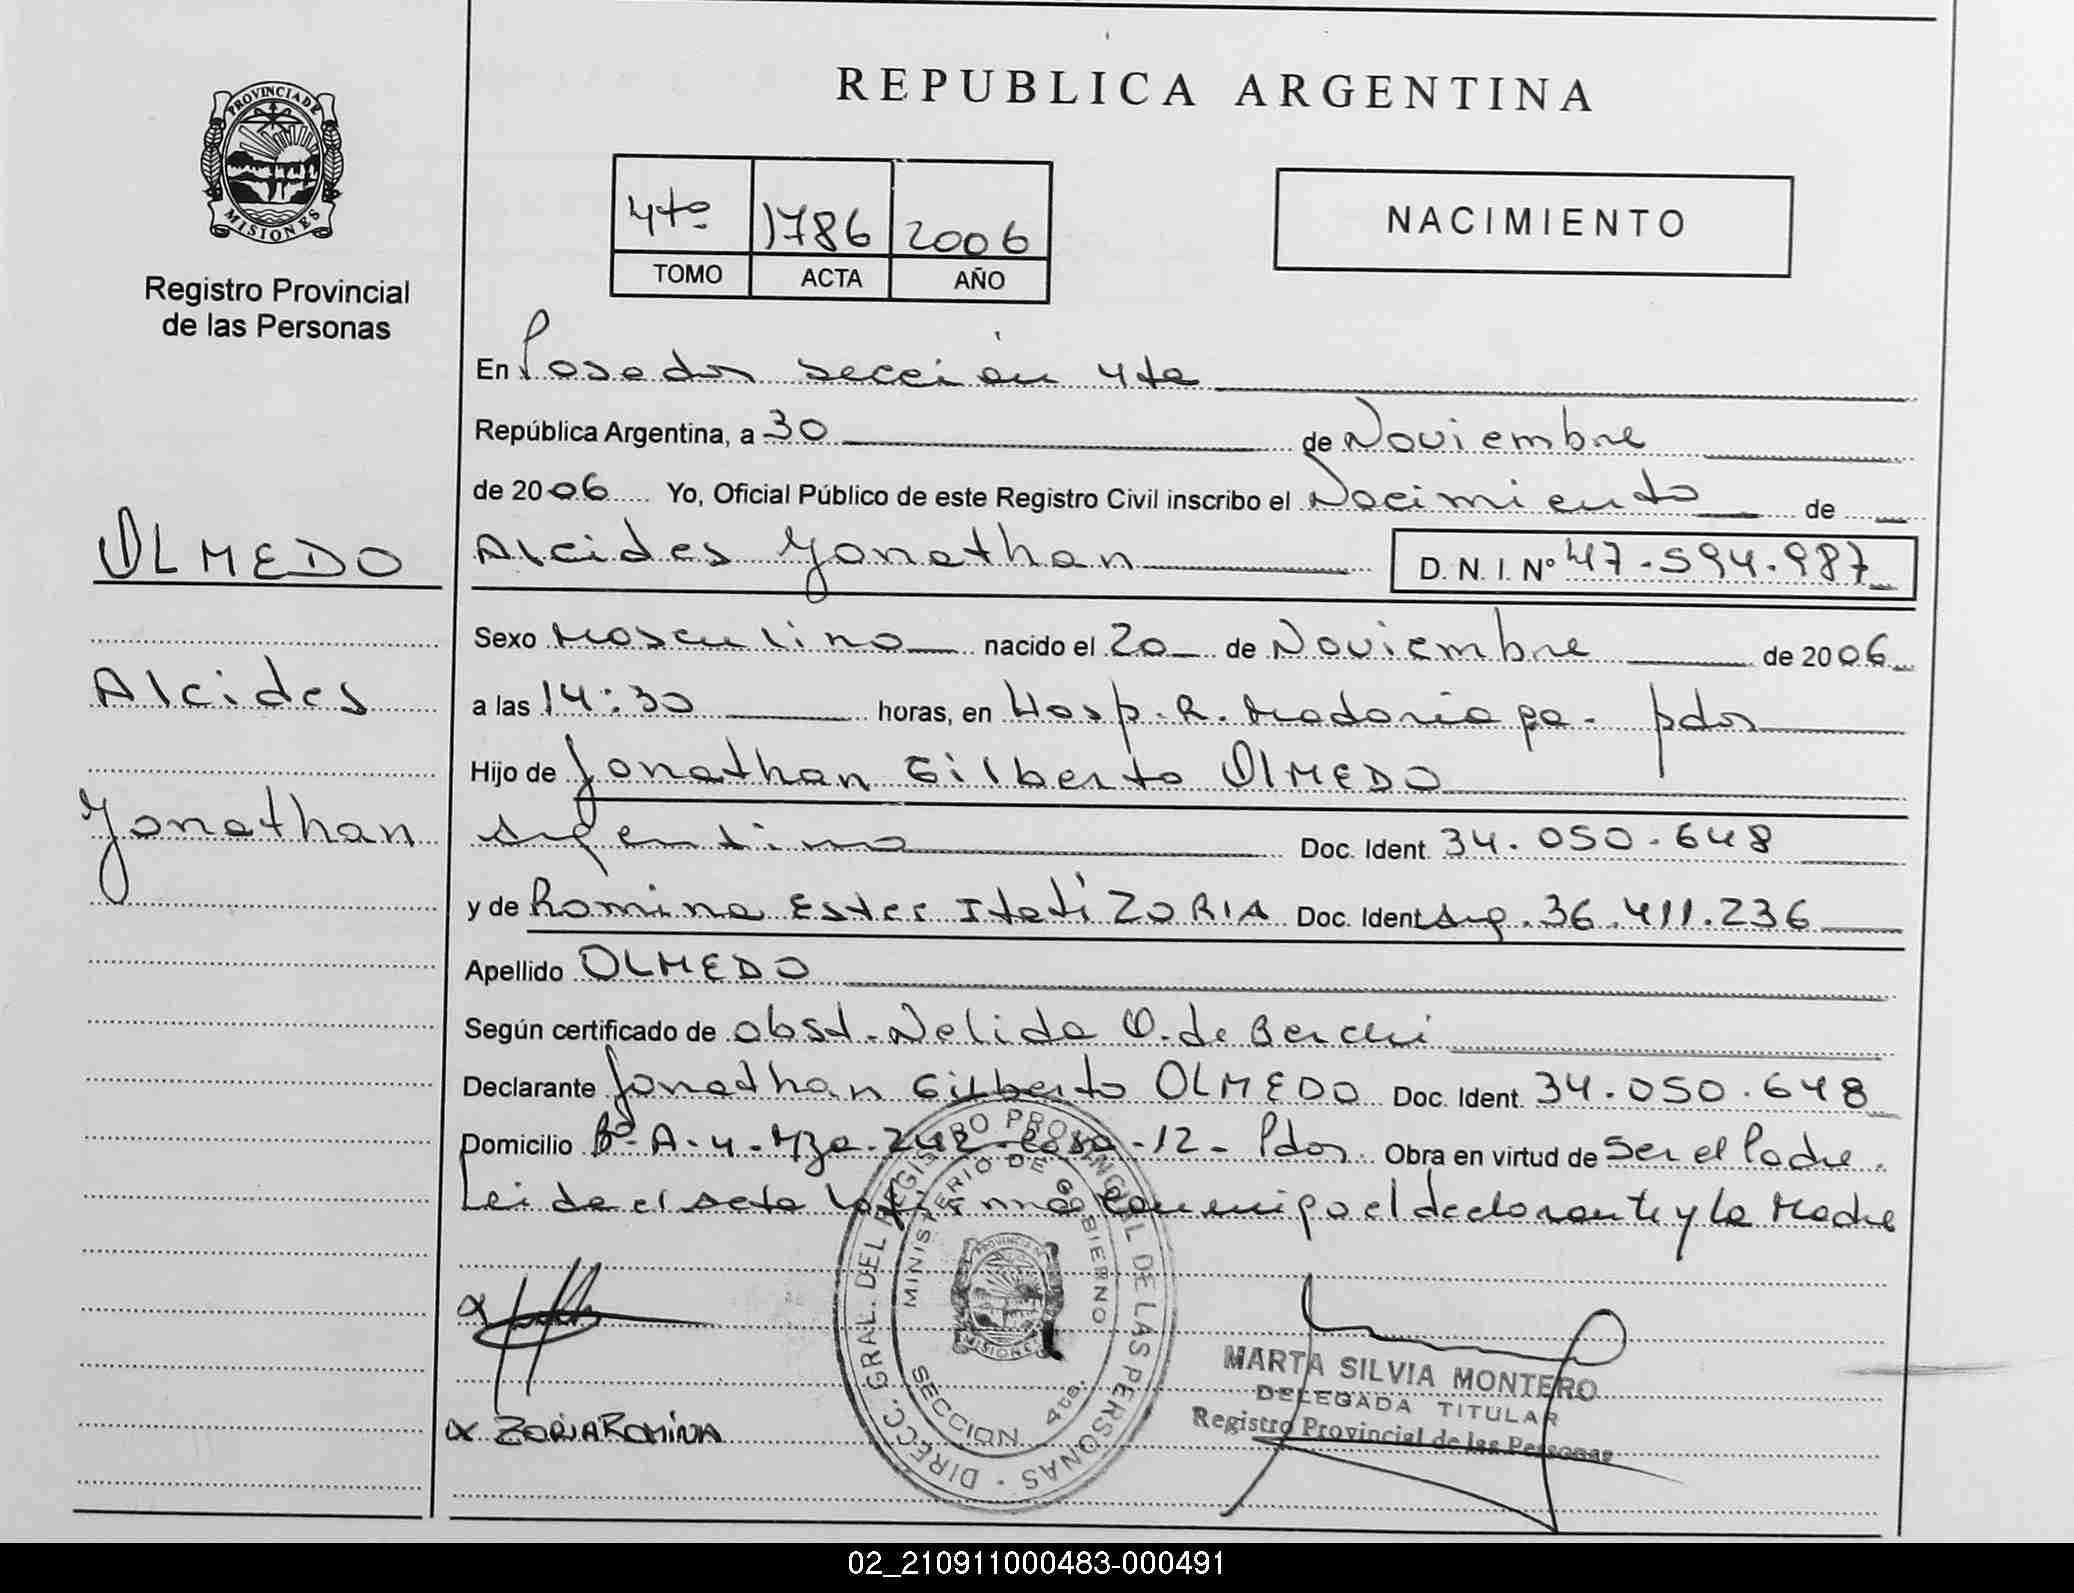 REPUBLICA ARGENTINA
PROVINCIA DE
MISIONES
Registro Provincial
de las Personas
4to 1786 2006
TOMO ACTA AÑO
NACIMIENTO
En Posadas sección 4ta
República Argentina, a 30 de Noviembre
de 2006 Yo, Oficial Público de este Registro Civil inscribo el Nacimiento de
OLMEDO
Alcides Jonathan D. N. I. Nº 47.594.987
Sexo Masculino nacido el 20 de Noviembre de 2006
Alcides
a las 14:30 horas, en Hosp. R. Madariaga. pdas
Hijo de Jonathan Gilberto OLMEDO
Jonathan
Argentino Doc. Ident. 34.050.648
y de Romina Ester Itatí ZORIA Doc. Ident Arg. 36.411.236
Apellido OLMEDO
Según certificado de obst. Nelida O. de Berchi
Declarante Jonathan Gilberto OLMEDO Doc. Ident. 34.050.648
Domicilio Bº. A-4-Mza. 242-casa-12- Pdas. Obra en virtud de Ser el Padre.
Leida el acta la firma conmigo el declarante y la Madre
DIRECC. GRAL. DEL REGISTRO PROVINCIAL DE LAS PERSONAS
MINISTERIO DE GOBIERNO
PROVINCIA DE
MISIONES
SECCION 4ta.
MARTA SILVIA MONTERO
DELEGADA TITULAR
Registro Provincial de las Personas
x ZORIA ROMINA
02_210911000483-000491